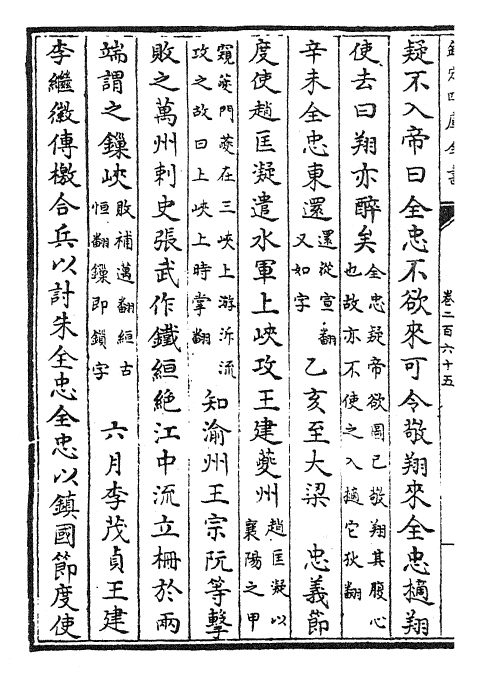 欽定四庫全書
卷二百六十五
疑不入帝曰全忠不欲來可令敬翔來全忠擿翔
使去曰翔亦醉矣全忠疑帝欲圖已敬翔其腹心也故亦不使之入擿它狄翻
辛未全忠東還還從宣翻又如字 乙亥至大梁 忠義節
度使趙匡凝遣水軍上峽攻王建夔州趙匡凝以襄陽之甲
窺夔門夔在三峽上游泝流攻之故曰上峽上時掌翻 知渝州王宗阮等擊
敗之萬州刺史張武作鐵絙絶江中流立柵於兩
端謂之鏁峽敗補邁翻絙古恒翻鏁即鎖字 六月李茂貞王建
李繼徽傳檄合兵以討朱全忠全忠以鎮國節度使